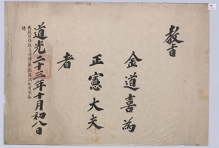 教旨
金道喜為
正憲大夫
者
道光二十三年十月初八日